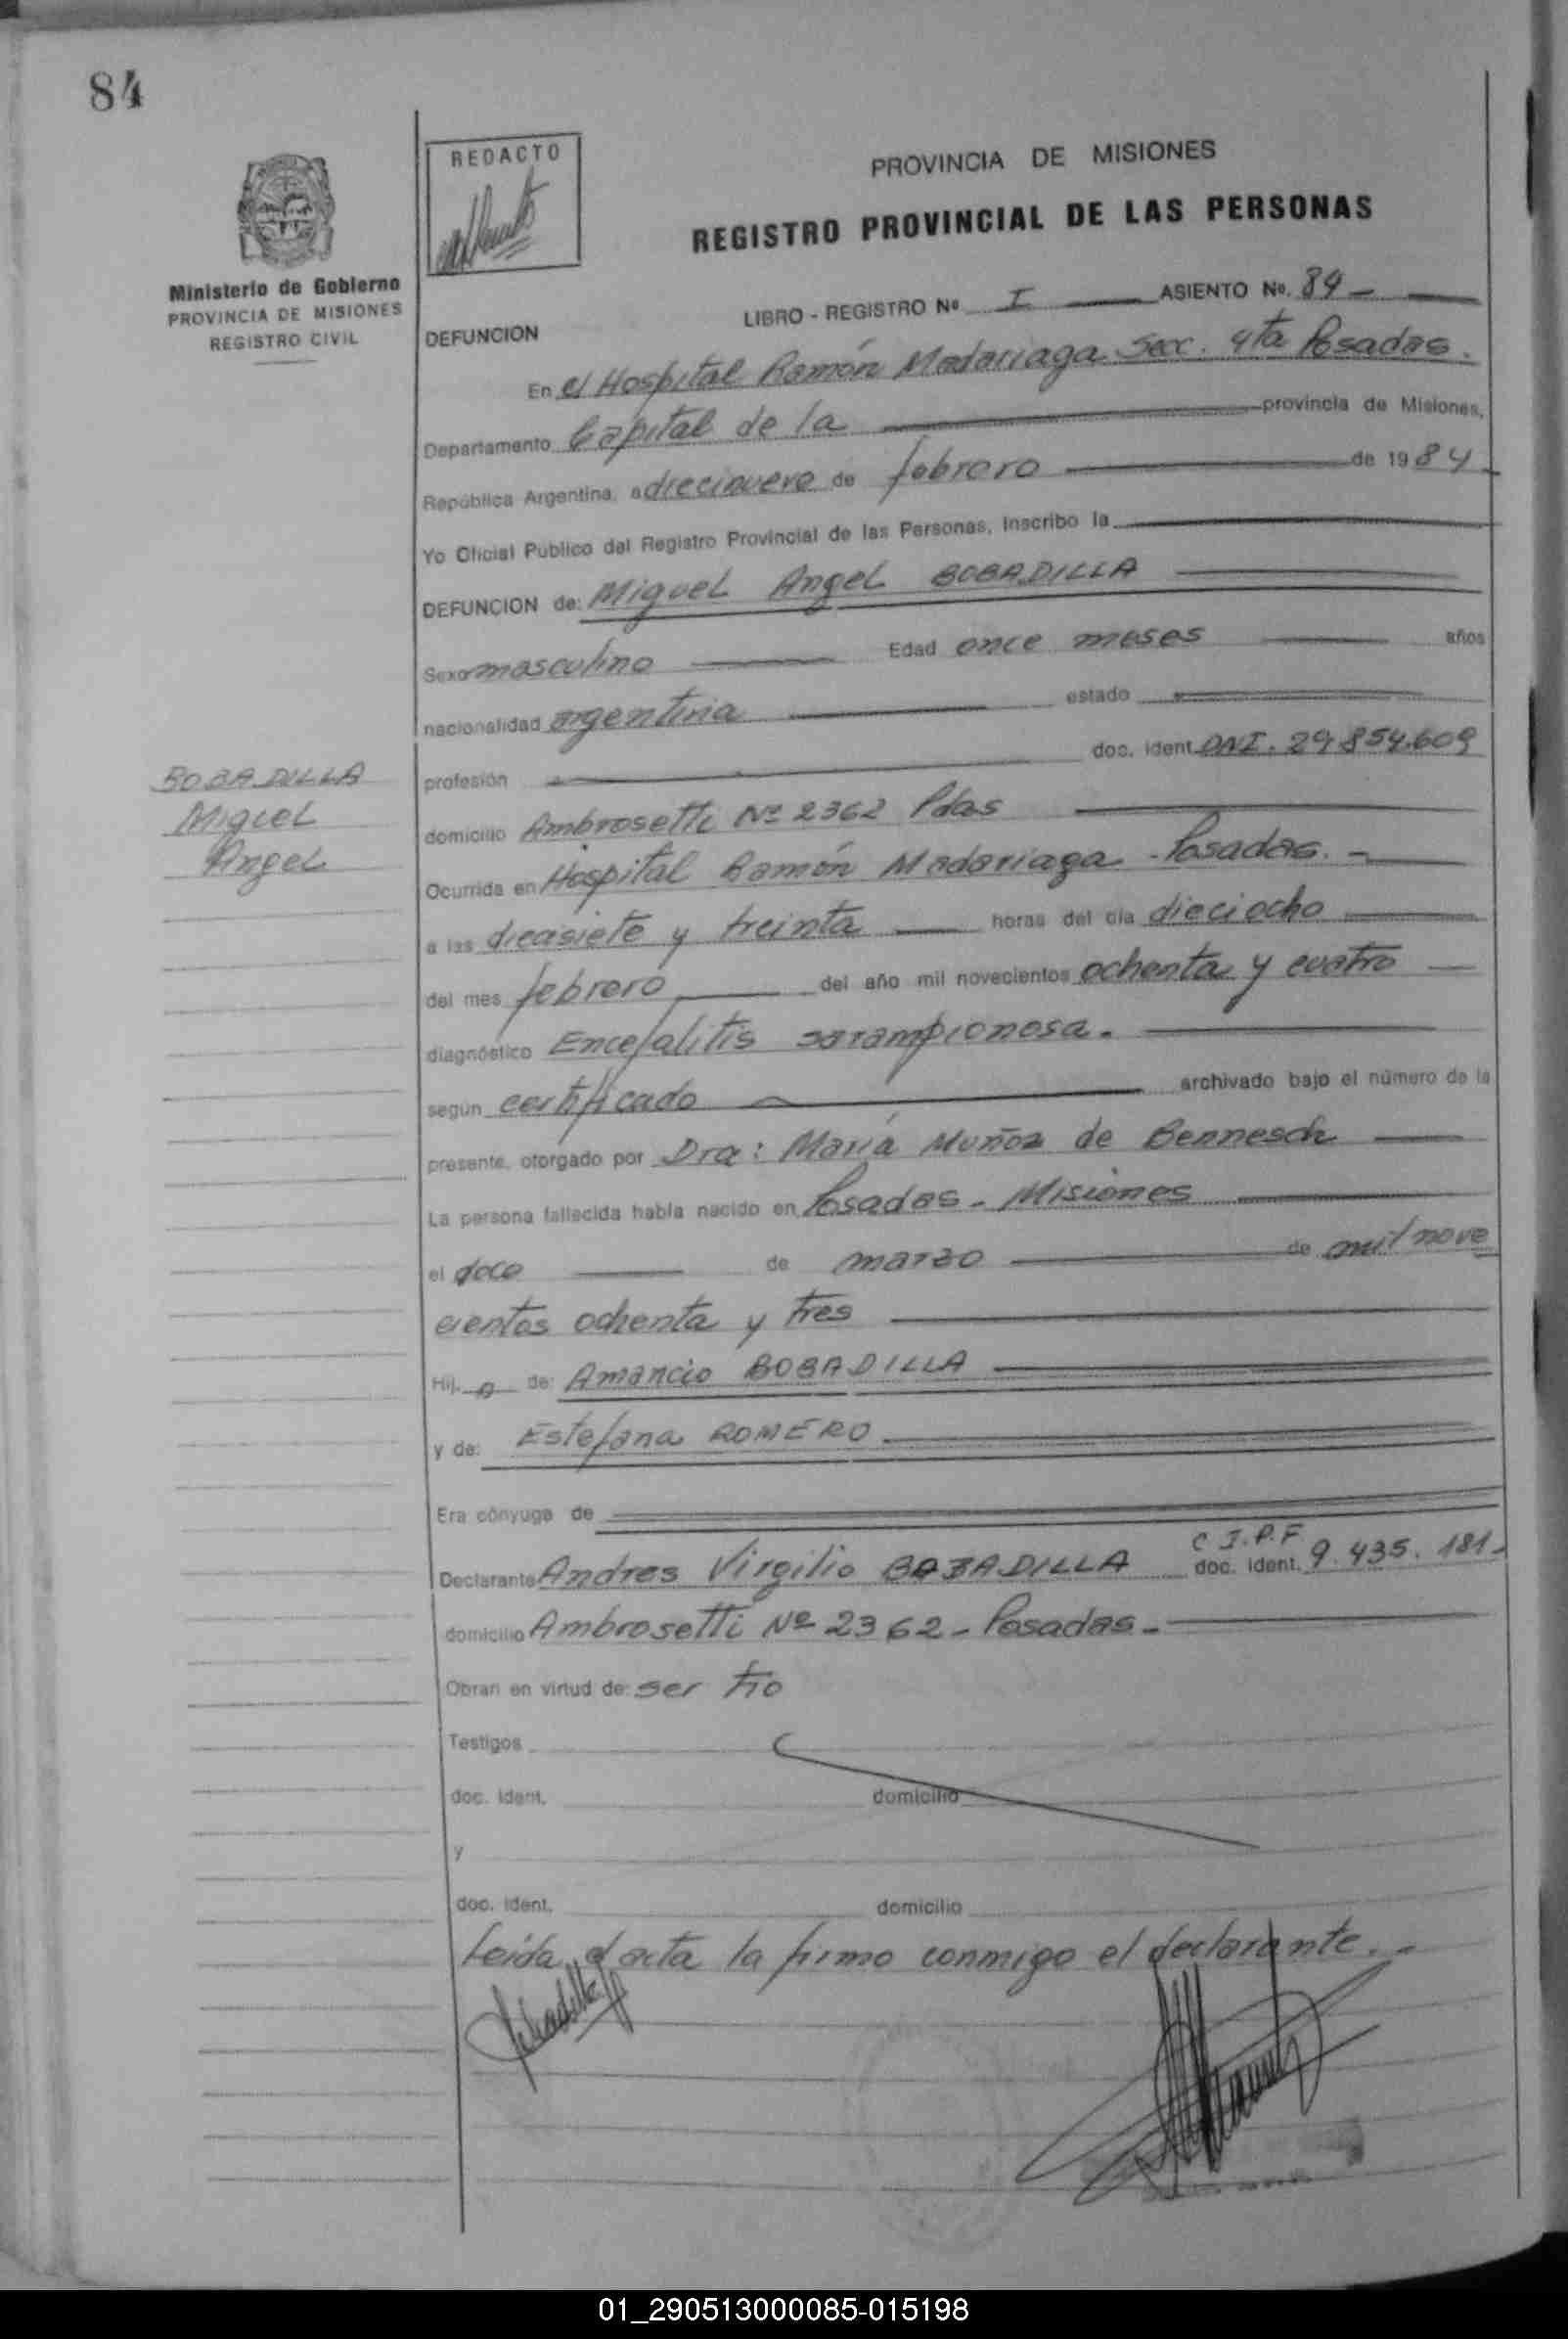 84
REDACTO
PROVINCIA DE MISIONES
REGISTRO PROVINCIAL DE LAS PERSONAS
Ministerio de Gobierno
PROVINCIA DE MISIONES
REGISTRO CIVIL
LIBRO - REGISTRO Nº I ASIENTO No. 84 -
DEFUNCION
En el Hospital Ramón Madariaga Secc. 4ta Posadas.
Departamento Capital de la provincia de Misiones,
República Argentina, a diecinueve de febrero de 1984
Yo Oficial Público del Registro Provincial de las Personas, inscribo la
DEFUNCION de: Miguel Angel BOBADILLA
Sexo masculino Edad once meses años
nacionalidad argentina estado
profesión doc. ident. DNI. 29.854.609
BOBADILLA
Miguel
Angel
domicilio Ambrosetti Nº 2362 Pdas
Ocurrida en Hospital Ramón Madariaga - Posadas. -
a las diecisiete y treinta horas del día dieciocho
del mes febrero del año mil novecientos ochenta y cuatro
diagnóstico Encefalitis sarampionosa.
según certificado archivado bajo el número de la
presente, otorgado por Dra: María Muñoz de Bennesch
La persona fallecida había nacido en Posadas - Misiones
el doce de marzo de mil nove
cientos ochenta y tres
Hij o de: Amancio BOBADILLA
y de: Estefana ROMERO
Era cónyuge de
Declarante Andres Virgilio BOBADILLA C.I.P.F doc. ident. 9.435.181-
domicilio Ambrosetti Nº 2362 - Posadas -
Obran en virtud de: ser tío
Testigos
doc. ident. domicilio
y
doc. ident. domicilio
Leida el acta la firmo conmigo el declarante. -
01_290513000085-015198